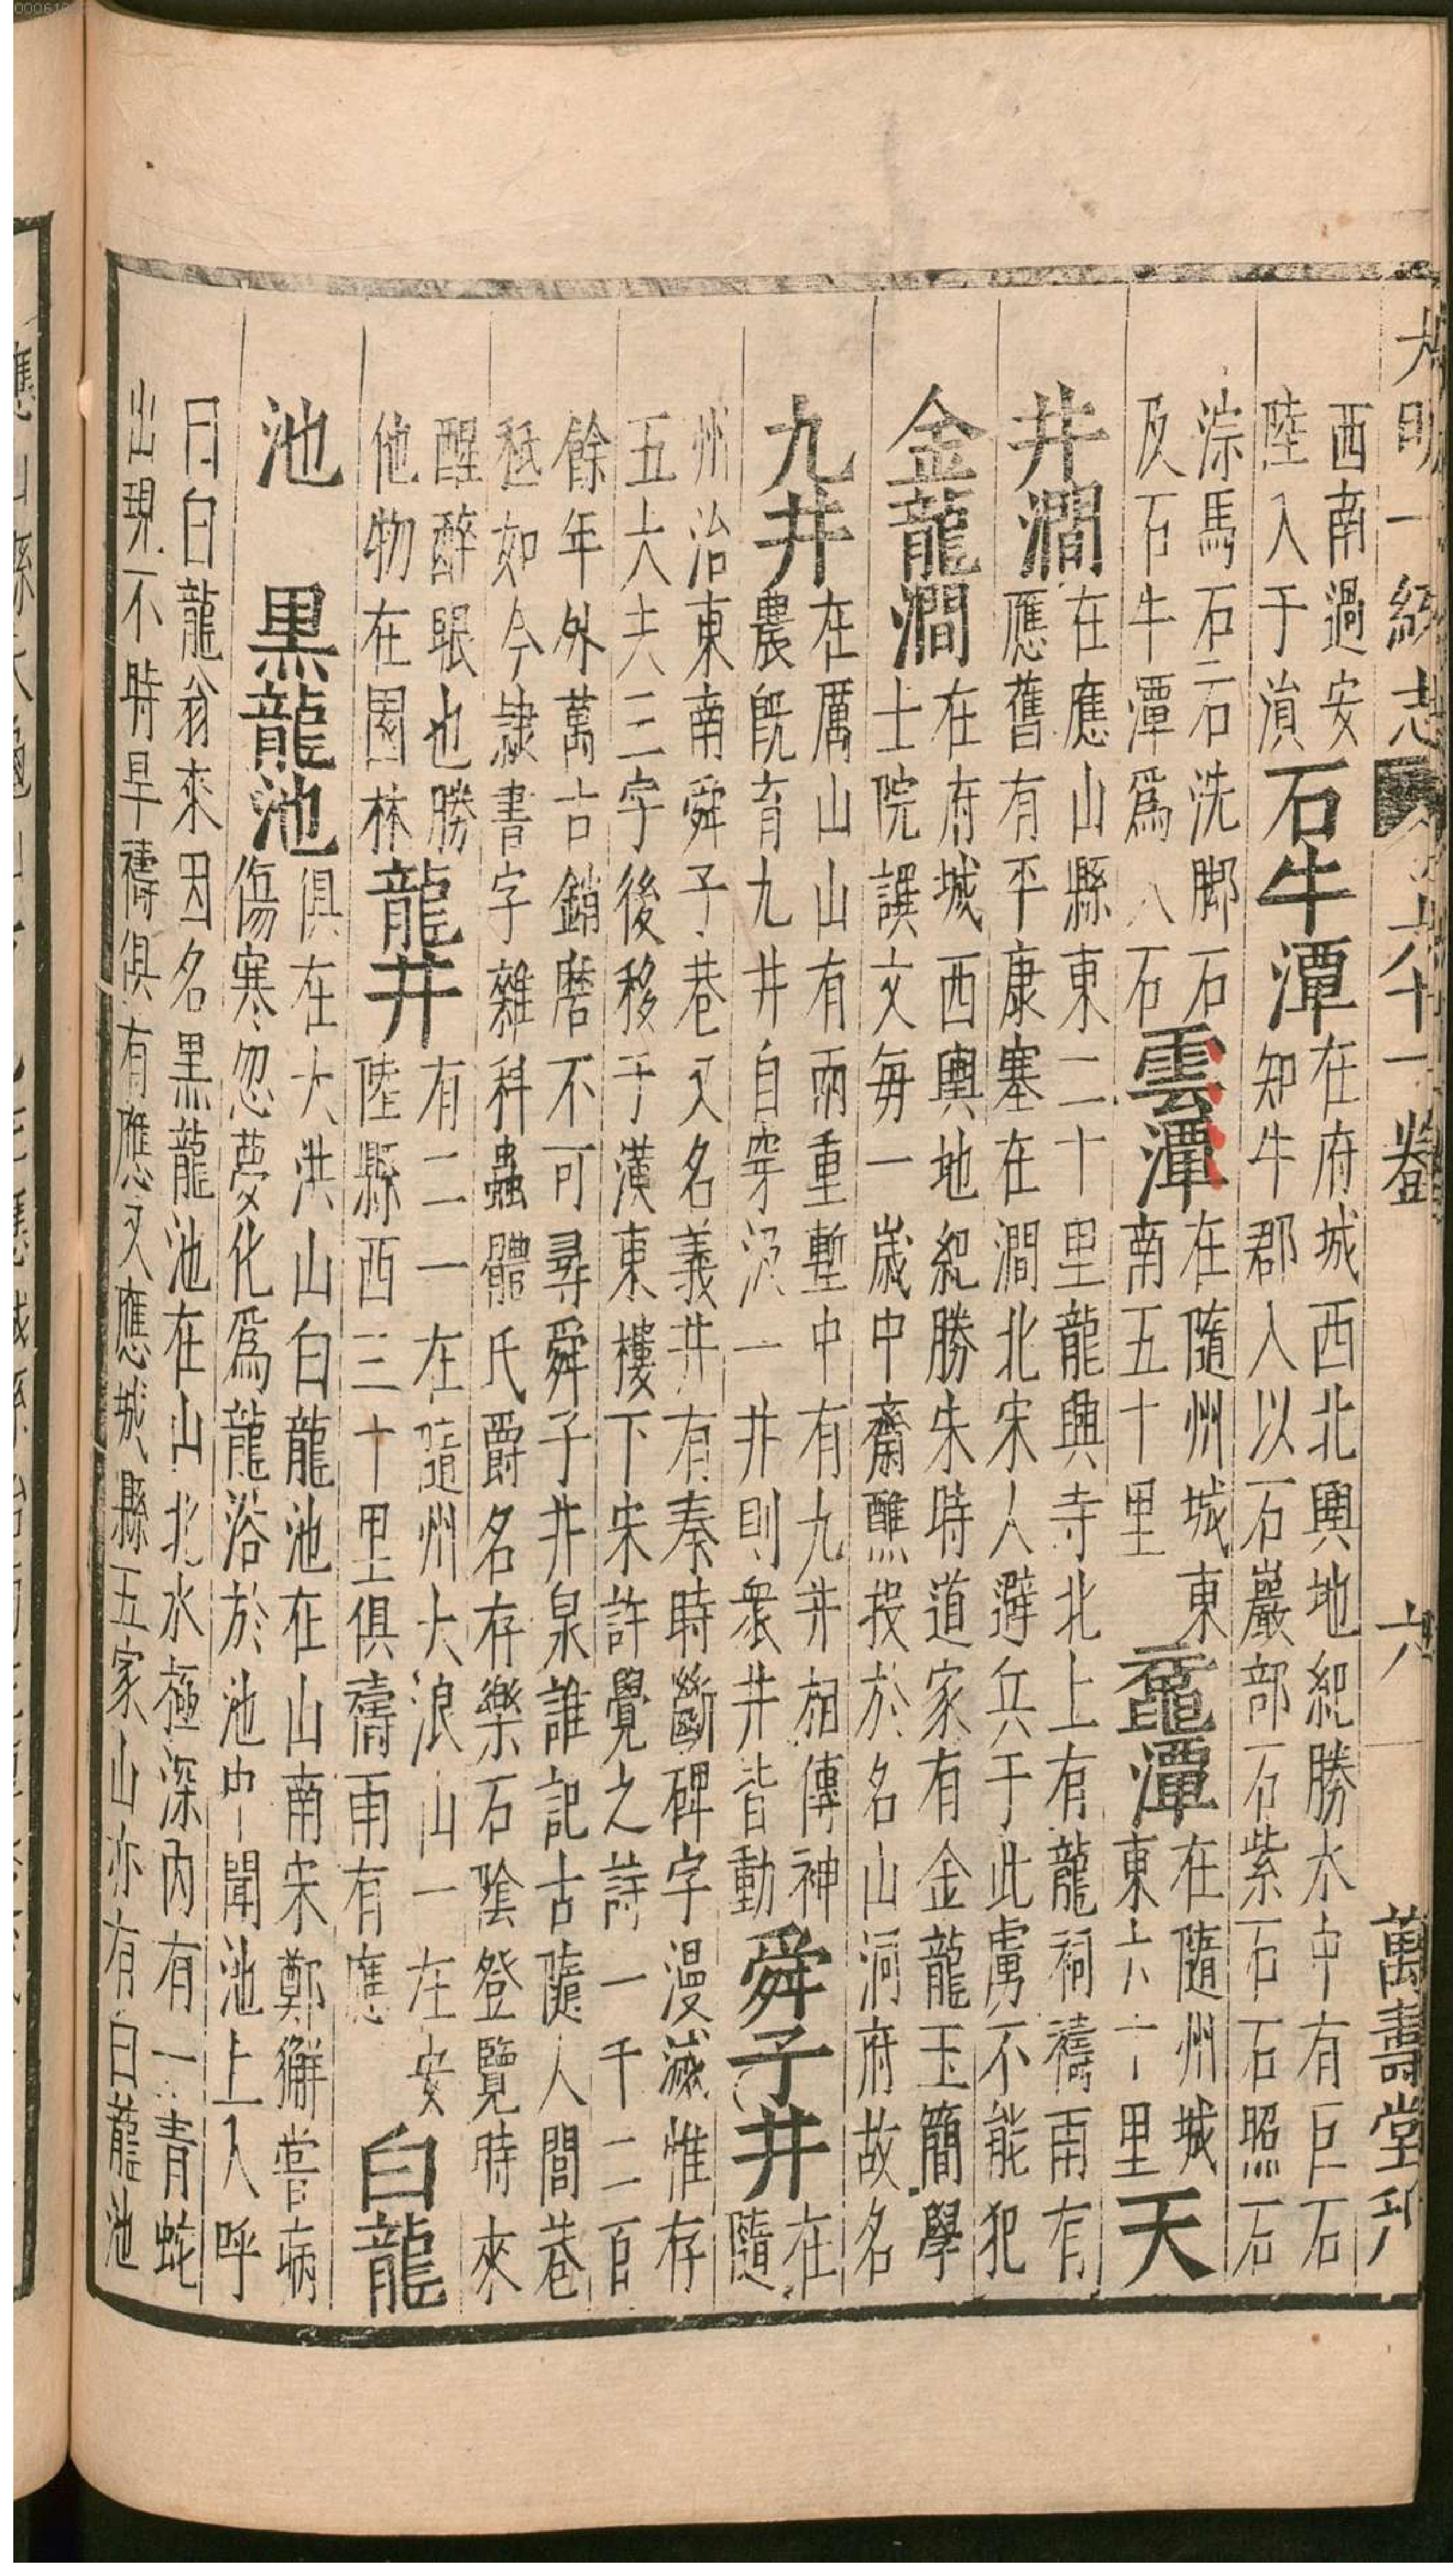 大明一統志 六十一卷 六 萬壽堂刋
西南過安
陸入于溳
石牛潭
在府城西北輿地紀勝水中有巨石
知牛郡人以石巖部石紫石石照石
淙馬石二石洗脚石
及石牛潭爲八石
雲潭
在隨州城東
南五十里
黿潭
在隨州城
東六十里
天
井澗
在應山縣東二十里龍興寺北上有龍祠禱雨有
應舊有平康寨在澗北宋人避兵于此虜不能犯
金龍澗
在府城西輿地紀勝朱時道家有金龍玉簡學
士院譔文每一歲中齋醮投於名山洞府故名
九井
在厲山山有兩重塹中有九井相傳神
農旣育九井自穿汲一井則衆井皆動
舜子井
在
隨
州治東南舜子巷又名義井有秦時斷碑字漫滅惟存
五大夫三字後移于漢東樓下宋許覺之詩一千二百
餘年外萬古銷磨不可尋舜子井泉誰記古隨人閭巷
秪如今隷書字雜科蟲體氏爵名存樂石陰登覽時來
醒醉眼也勝
他物在園林
龍井
有二一在隨州大浪山一在安
陸縣西三十里俱禱雨有應
白龍
池
黒龍池
俱在大洪山白龍池在山南宋鄭獬嘗病
傷寒忽夢化爲龍浴於池中聞池上人呼
曰白龍翁來因名黒龍池在山北水極深內有一青蛇
出現不時旱禱俱有應又應城縣五家山亦有白龍池